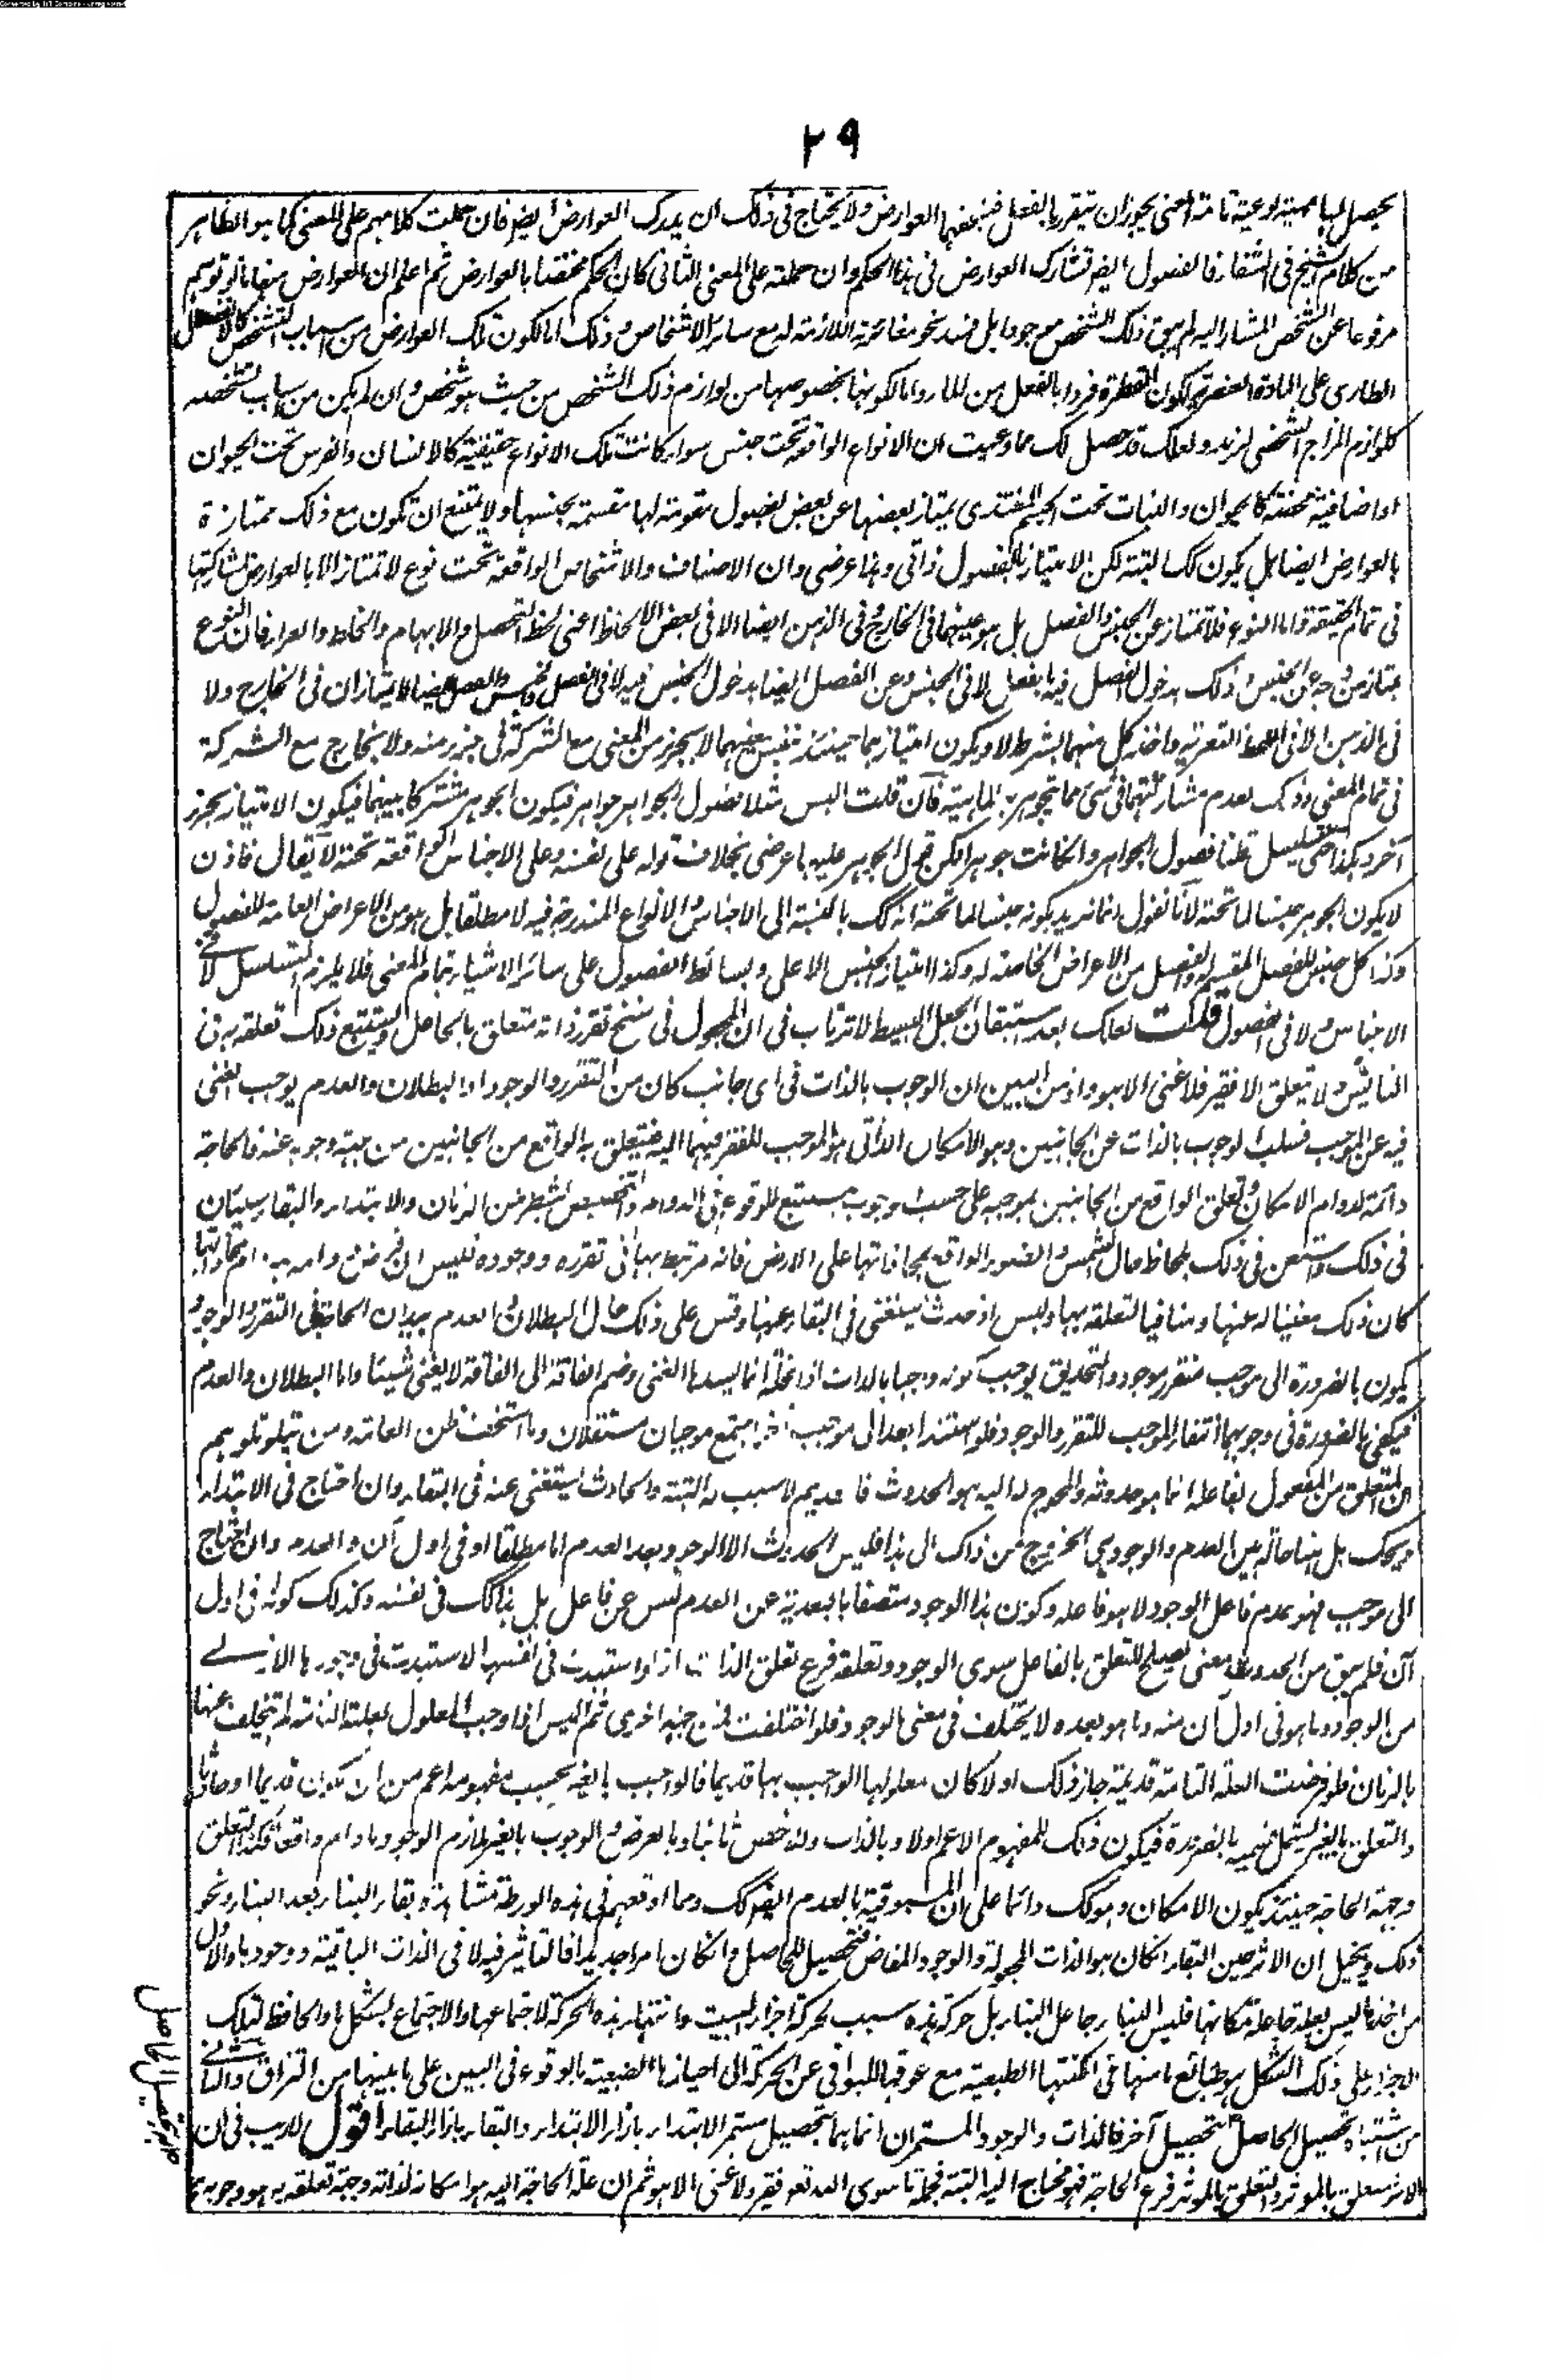 ٢٩
يحصل لها مهية نوعية تامة المعنى يجوز ان يتقرر بالفعل فيتبعها العوارض ولا يحتاج فى ذلك ان يدرك العوارض ايضا فان حملت كلامهم على المعنى كما هو الظاهر
من كلام الشيخ فى الشفاء فالفصول ايضا تشارك العوارض فى هذا الحكم وان حملته على المعنى الثانى كان الحكم مختصا بالعوارض ثم اعلم ان العوارض منها ما لو توهم
مرفوعا عن الشخص المشار اليه لم يبق ذلك الشخص موجودا بل فسد نحو مغائرته اللازمة له مع سائر الاشخاص وذلك اما لكون تلك العوارض من اسباب التشخص كالانفصال
الطارى على المادة العنصرية لكون القطرة فردا بالفعل من الماء واما لكونها بخصوصها من لوازم ذلك الشخص من حيث هو شخص وان لم يكن من اسباب تشخصه
كلوازم المزاج الشخصى لزيد ولعلك قد حصل لك مما وعيت ان الانواع الواقعة تحت جنس سواء كانت تلك الانواع حقيقية كالانسان والفرس تحت الحيوان
او اضافية محضة كالحيوان والنبات تحت الجسم المغتذى يمتاز بعضها عن بعض بفصول مقومة لها مقسمة بجنسها ولا يمتنع ان تكون مع ذلك ممتازة
بالعوارض ايضا بل يكون كك البتة لكن الامتياز بالفصول ذاتى وبها عرضى وان الاصناف والاشخاص الواقعة تحت نوع لا تمتاز الا بالعوارض لمشاركتها
فى تمام الحقيقة واما النوع فلا تمتاز عن الجنس والفصل بل هو عينهما فى الخارج وفى الذهن ايضا الا فى بعض الالحاظ اعنى لحظ التحصل والابهام والخلط والعراء فان النوع
يمتاز من وجه عن الجنس وذلك بدخول الفصل فيه بالفعل لا فى الجنس وعن الفصل ايضا بدخول الجنس فيه لا فى الفصل والجنس والفصل ايضا لا يمتازان فى الخارج ولا
فى الذهن الا فى اللحظ التعرية واخذ كل منهما بشرط لا ويكون امتيازهما حينئذ بنفس معنيهما لا بجزء من المعنى مع الشركة فى جزء منه ولا بخارج مع الشركة
فى تمام المعنى وذلك لعدم مشاركتهما فى شىء مما يتجوهر به الماهية فان قلت اليس مثلا فصول الجواهر جواهر فيكون الجوهر مشتركا بينها فيكون الامتياز بجزء
آخر وهكذا حتى يتسلسل قلنا فصول الجواهر وان كانت جوهرا لكن حمل الجوهر عليها عرضى بخلاف قوله على نفسه وعلى الاجناس الواقعة تحته لا يقال فاذن
لا يكون الجوهر جنسا لما تحته لانا نقول انما نريد بكونه جنسا لما تحته انه كك بالنسبة الى الاجناس والانواع المندرجة فيه لا مطلقا بل هو من الاعراض العامة للفصول
وكذا كل جنس للفصل المقسم له والفصل من الاعراض الخاصة له وكذا امتياز الجنس الاعلى وبسائط الفصول على سائر الاشياء بتمام المعنى فلا يلزم التسلسل لا فى
الاجناس ولا فى الفصول قلت لعلك بعد استيقان الجعل البسيط لا ترتاب فى ان المجعول فى سنخ تقرر ذاته متعلق بالجاعل ويستتبع ذلك تعلقه به فى
التايس ولا تعلق الا فقير فلا غنى الا هو واذ من البين ان الوجوب بالذات فى اى جانب كان من التقرر والوجود او البطلان والعدم يوجب الغنى
فيه عن الموجب فسلب الوجوب بالذات عن الجانبين وهو الامكان الذاتى هو الموجب للفقر فيهما اليه فيتعلق به الواقع من الجانبين من جهة وجوبه عنه فالحاجة
دائمة لدوام الامكان وتعلق الواقع من الجانبين بموجبه على حسب وجوب مستتبع للوقوع فى الدوام والتخصيص بشطر من الزمان والابتداء والبقاء سيان
فى ذلك واستعن فى ذلك بلحاظ حال الشمس والضوء الواقع بمحاذاتها على الارض فانه مرتبط بها فى تقرره ووجوده فليس ان فرض دوامه بدوام محاذاتها
كان ذلك مغنيا له عنها ومنافيا لتعلقه بها وليس اذ حدث يستغنى فى البقاء عنها وقس على ذلك حال البطلان والعدم بيد ان الحاجة فى التقرر والوجود
يكون بالضرورة الى موجب متقرر موجود والتحديق يوجب كونه واجبا بالذات اذ الخلة انما يسدها الغنى وضم الفاقة الى الفاقة لا يغنى شيئا واما البطلان والعدم
فيكفى بالضرورة فى وجوبهما انتفاء الموجب للتقرر والوجود فلو استند ابعد الى موجب آخر اجتمع موجبان مستقلان وما استخف ظن العامة ومن يتلو تلوهم
ان المتعلق من المفعول بفاعله انما هو حدوثه والمحوج له اليه هو الحدوث فالقديم لا سبب له البتة والحادث يستغنى عنه فى البقاء وان احتاج فى الابتداء
ويحك هل هنا حالة بين العدم والوجود هى الخروج من ذاك الى هذا فليس الحدوث الا الوجود بعد العدم اما مطلقا او فى اول آن والعدم وان احتاج
الى موجب فهو عدم فاعل الوجود لا هو فاعله وكون هذا الوجود متصفا بالبعدية عن العدم ليس عن فاعل بل هذا كك فى نفسه وكذلك كونه فى اول
آن فلم يبق من الحدوث معنى يصلح للتعلق بالفاعل سوى الوجود وتعلقه فرع تعلق الذات اذ لو استبدت فى نفسها لاستبدت فى وجودها الازلى
من الوجود وما هو فى اول آن منه وما هو بعده لا يختلف فى معنى الوجود فلو اختلفت فمن جنبه اخرى ثم اليس اذا وجب المعلول لعلته التامة لم يتخلف عنها
بالزمان فلو فرضت العلة التامة قديمة جاز ذلك اولا كان معلولها الواجب بها قديما فالواجب بالغير بحسب مفهومه اعم من ان يكون قديما او حادثا
والتعلق بالغير يشمل قسميه بالضرورة فيكون ذلك للمفهوم الاعم اولا وبالذات وللاخص ثانيا وبالعرض ثم الوجوب بالغير يلازم الوجود ما دام واقعا فكذا التعلق
وجهة الحاجة حينئذ يكون الامكان وهو كك دائما على ان المسبوقية بالعدم ايضا كك ومما اوقعهم فى هذه الورطة مشاهدة بقاء البناء بعد البناء ونحو
ذلك ويخيل ان الاثر حين البقاء ان كان هو الذات المجعولة والوجود المفاض فتحصيل للحاصل وان كان امرا جديدا فالتاثير فيه لا فى الذات الباقية ووجودها والاول
من اخذ ما ليس بعلة جاعلة مكانها فليس البناء جاعل البناء بل حركة يده سبب لحركة اجزاء البيت وانتهاء هذه الحركة لاجتماعها والاجتماع لشكلها والحافظ لتلك
الاجزاء على ذلك الشكل هو طبائع ما منها فى امكنتها الطبيعية مع عوقها للبواقى عن الحركة الى احيازها الطبيعية بالوقوع فى البين على ما بينها من التزاق والثانى
من اشتباه تحصيل الحاصل بتحصيل آخر فالذات والوجود المستمران انما هما بتحصيل مستمر الابتداء بازاء الابتداء والبقاء بازاء البقاء اقول لا ريب فى ان
الاثر متعلق بالموثر والتعلق بالموثر فرع الحاجة فهو محتاج اليه البتة فجملة ما سوى الله تعالى فقير ولا غنى الا هو ثم ان علة الحاجة اليه هو امكانه لذاته وجهة تعلقه به هو وجوبه